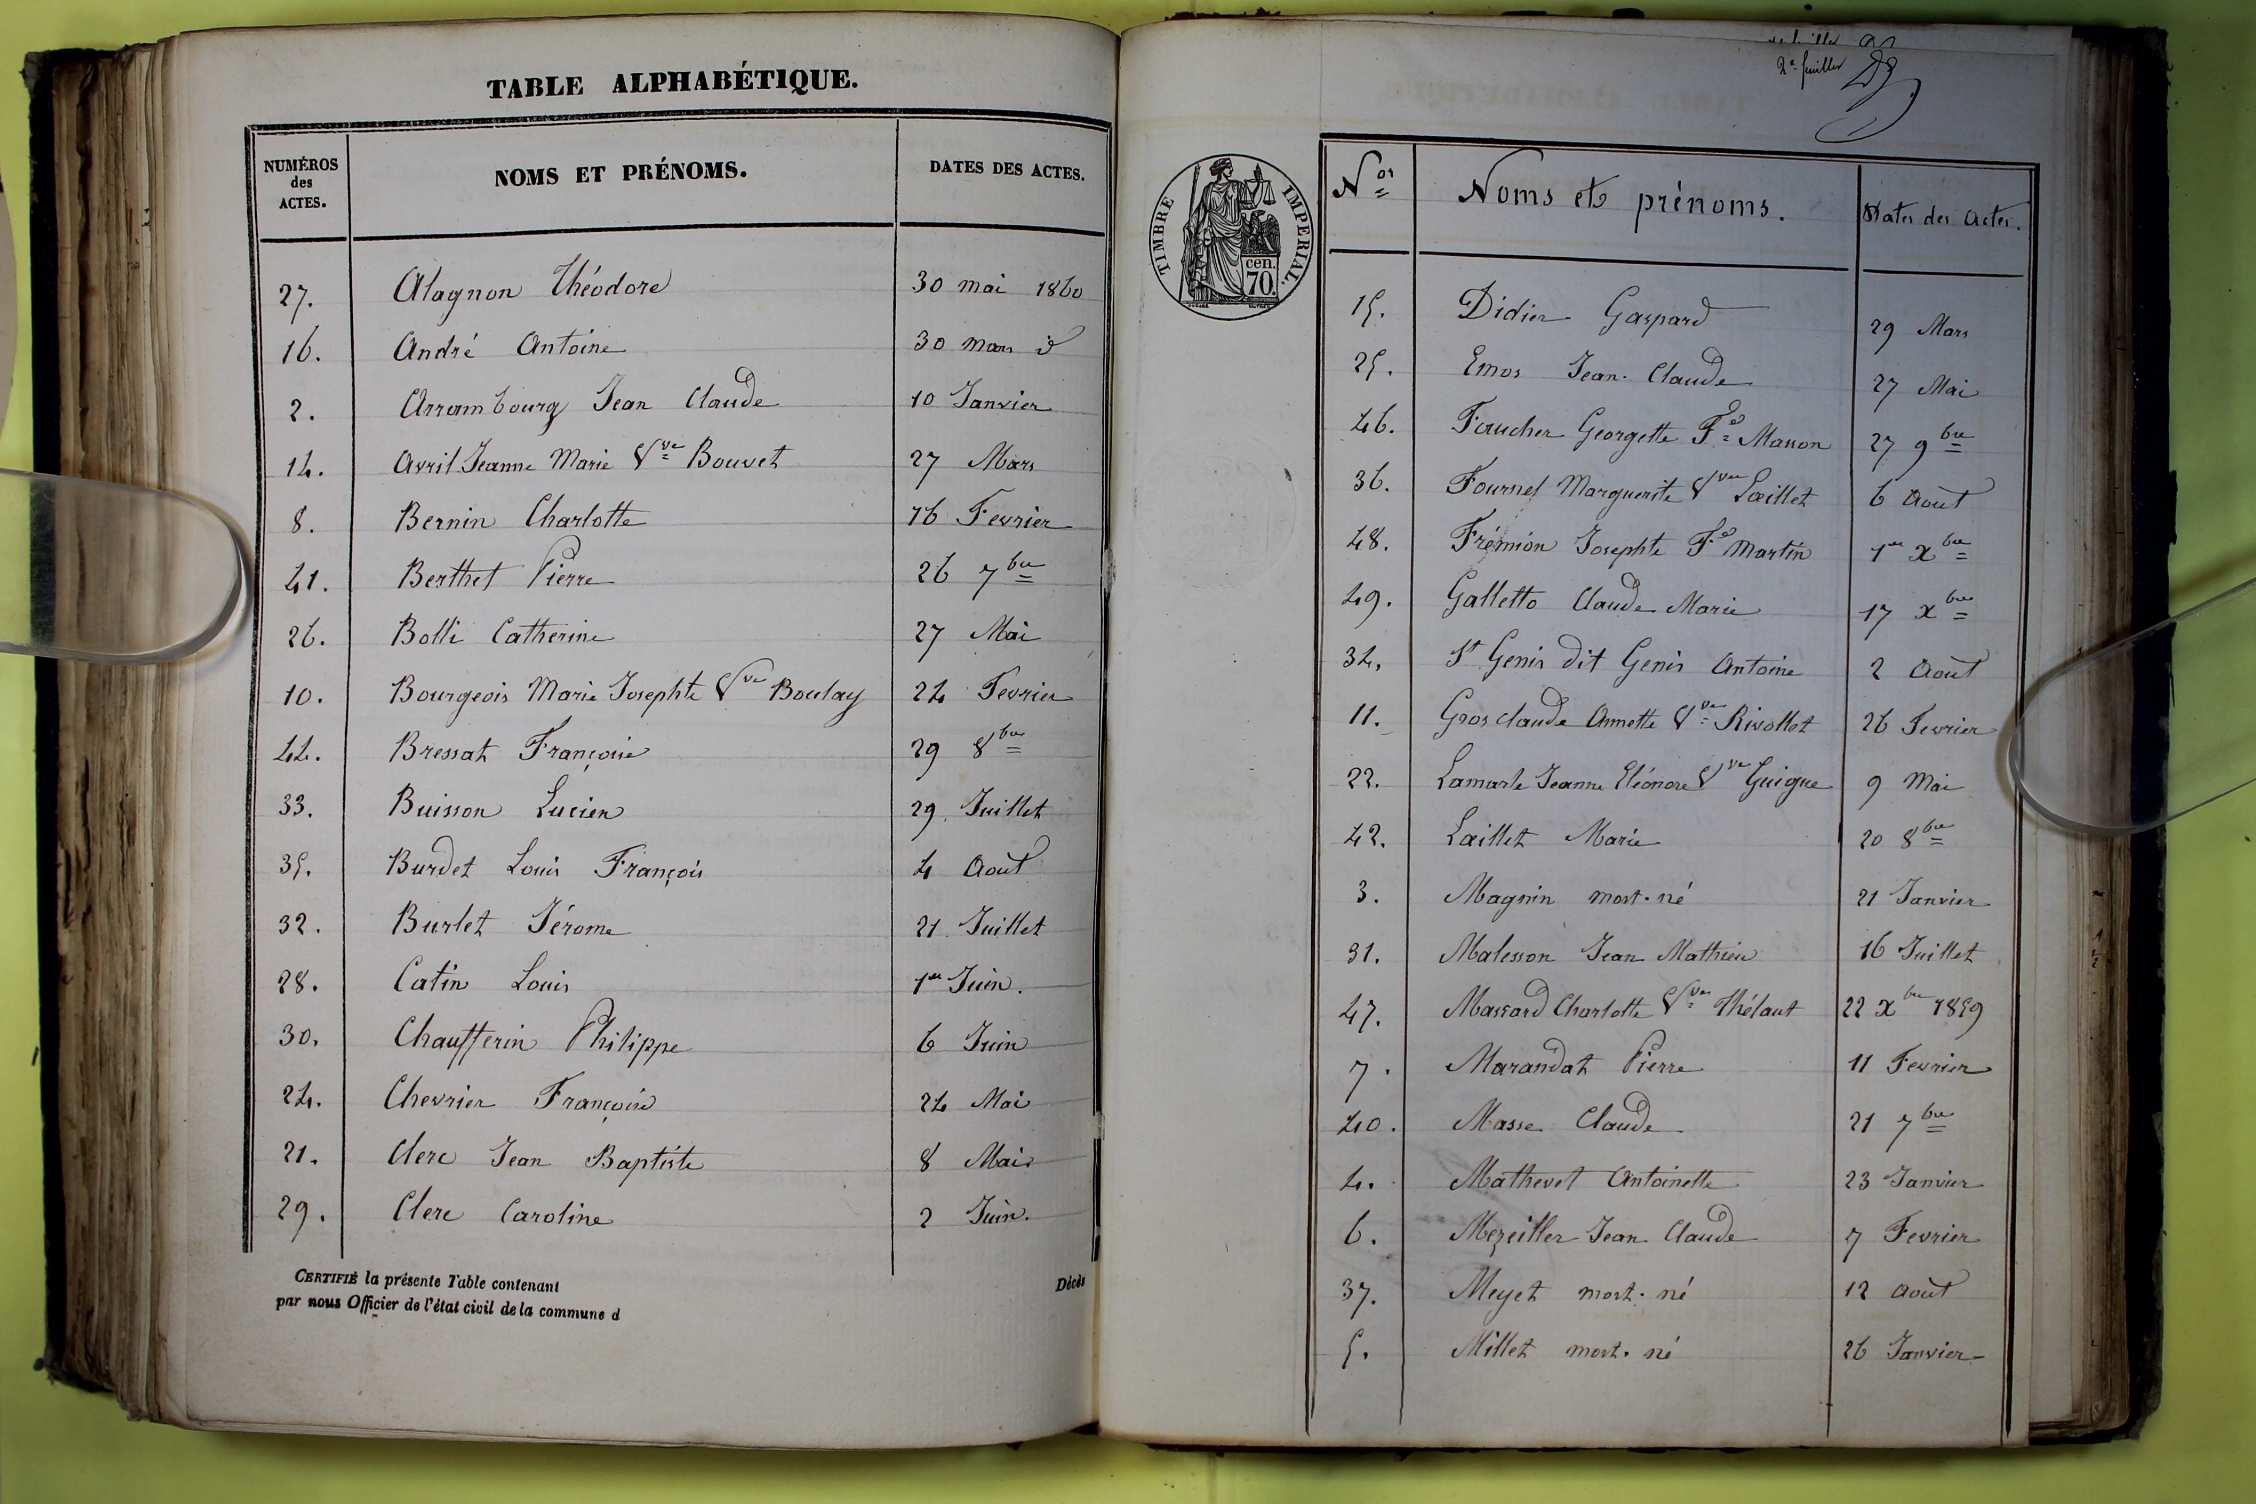 TABLE ALPHABÉTIQUE.
NUMÉROS des ACTES. NOMS ET PRÉNOMS. DATES DES ACTES.
27. Alagnon Théodore 30 mai 1860
16. André Antoine 30 mars d
2. Arrambourg Jean Claude 10 Janvier
14. Avril Jeanne Marie Vve Bouvet 27 Mars
8. Bernin Charlotte 16 Fevrier
41. Berthet Pierre 26 7bre
26. Bolli Catherine 27 Mai
10. Bourgeois Marie Josephte Vve Boulay 24 Fevrier
44. Bressat Françoise 29 8bre
33. Buisson Lucien 29 Juillet
35. Burdet Louis François 4 Août
32. Burlet Jérome 21 Juillet
28. Catin Louis 1er Juin.
30. Chaufferin Philippe 6 Juin
24. Chevrier Françoise 24 Mai
21. Clerc Jean Baptiste 8 Mai
29. Clerc Caroline 2 Juin.
CERTIFIÉ la présente Table contenant Décès
par nous Officier de l'état civil de la commune d
2e feuillet
TIMBRE IMPERIAL.
cen.
70.
Nos Noms et prénoms. Dates des Actes.
15. Didier Gaspard 29 Mars
25. Emos Jean-Claude 27 Mai
46. Faucher Georgette Fe Masson 27 9bre
36. Fournel Marguerite Vve Lœillet 6 Août
48. Frémion Josephte Fe Martin 1er Xbre
49. Galletto Claude Marie 17 Xbre
34. St Genis dit Genis Antoine 2 Août
11. Grosclaude Annette Vve Rivollet 26 Fevrier
22. Lamarle Jeanne Eléonore Vve Guigue 9 Mai
42. Laillet Marie 20 8bre
3. Magnin mort-né 21 Janvier
31. Malesson Jean Mathieu 16 Juillet
47. Massard Charlotte Vve Thélaut 22 Xbre 1859
7. Marandat Pierre 11 Fevrier
40. Masse Claude 21 7bre
4. Mathevet Antoinette 23 Janvier
6. Mezeiller Jean Claude 7 Fevrier
37. Meyet mort-né 12 août
5. Millet mort-né 26 Janvier